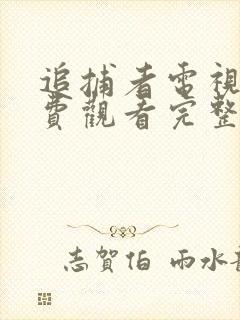 追捕者電視
費觀看完整
志賀伯 雨水